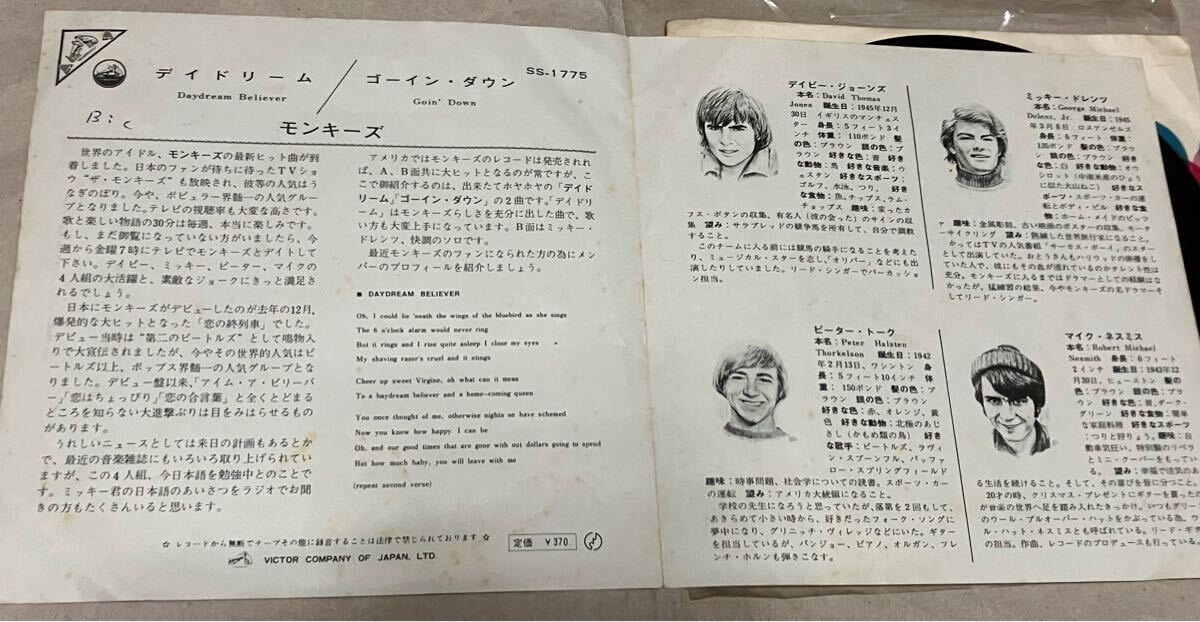 SS-1775
デイドリーム
Daydream Believer
ゴーイン・ダウン
Goin' Down
B:c
モンキーズ
世界のアイドル、モンキーズの最新ヒット曲が到
着しました。日本のファンが待ちに待ったTVショ
ウ“ザ・モンキーズ”も放映され、彼等の人気はう
なぎのぼり。今や、ポピュラー界髄一の人気グルー
プとなりました。テレビの視聴率も大変な高さです。
歌と楽しい物語の30分は毎週、本当に楽しみです。
もし、まだ御覧になっていない方がいましたら、今
週から金曜7時にテレビでモンキーズとデイトして
下さい。デイビー、ミッキー、ピーター、マイクの
4人組の大活躍と、素敵なジョークにきっと満足さ
れるでしょう。
日本にモンキーズがデビューしたのが去年の12月,
爆発的な大ヒットとなった「恋の終列車」でした。
デビュー当時は“第二のビートルズ”として鳴物入
りで大宣伝されましたが、今やその世界的人気はビ
ートルズ以上、ポップス界髄一の人気グループとな
りました。デビュー盤以来、「アイム・ア・ビリーバ
ー」「恋はちょっぴり」「恋の合言葉」と全くとどまる
どころを知らない大進撃ぶりは目をみはらせるもの
があります。
うれしいニュースとしては来日の計画もあるとか
で、最近の音楽雑誌にもいろいろ取り上げられてい
ますが、この4人組、今日本語を勉強中とのことで
す。ミッキー君の日本語のあいさつをラジオでお聞
きの方もたくさんいると思います。
アメリカではモンキーズのレコードは発売されれ
ば、A、B面共に大ヒットとなるのが常ですが、こ
こで御紹介するのは、出来たてホヤホヤの「デイド
リーム」「ゴーイン・ダウン」の2曲です。「デイドリ
ーム」はモンキーズらしさを充分に出した曲で、歌
い方も大変上手になっています。B面はミッキー・
ドレンツ、快調のソロです。
最近モンキーズのファンになられた方の為にメン
バーのプロフィールを紹介しましょう。
■ DAYDREAM BELIEVER
Oh, I could lie 'neath the wings of the bluebird as she sings
The 6 o'clock alarm would never ring
But it rings and I rise quite asleep I close my eyes
My shaving razor's cruel and it stings
Cheer up sweet Virgine, oh what can it mean
To a baydream believer and a home-coming queen
You once thought of me, otherwise nights on have schemed
Now you know how happy I can be
Oh, and our good times that are gone with out dollars going to spend
But how much baby, you will leave with me
(repeat second verse)
☆ レコードから無断でテープその他に録音することは法律で禁じられております ☆
定価 ¥370.
VICTOR COMPANY OF JAPAN, LTD.
デイビー・ジョーンズ
本名：David Thomas
Jones 誕生日：1945年12月
30日 イギリスのマンチェス
ター 身長：5フィート3イ
ンチ 体重：110ポンド 髪
の色：ブラウン 眼の色：ブ
ラウン 好きな色：青 好き
な動物：馬 好きな音楽：ウ
ェスタン 好きなスポーツ：
ゴルフ、水泳、つり、 好き
な食物：魚、チップス、ラム・
チョップス 趣味：変ったカ
フス・ボタンの収集、有名人（彼の会った）のサインの収
集 望み：サラブレッドの競争馬を所有して、自分で調教
すること。
このチームに入る前には競馬の騎手になることを考えた
り、ミュージカル・スターを志し、「オリバー」などにも出
演したりしていました。リード・シンガーでパーカッショ
ン担当。
ミッキー・ドレンツ
本名：George Michael
Dolenz, Jr. 誕生日：1945
年3月8日 ロスアンゼルス
身長：6フィート 体重：
135ポンド 髪の色：ブラウ
ン 眼の色：ブラウン 好き
な色：白 好きな動物：オウ
シロット（中南米産のひょう
に似た大山ねこ） 好きなス
ポーツ：スポーツ・カーの運
転とボディ・ビル 好きな食
物：ホーム・メイドのピッツ
ァ 趣味：金属彫刻、古い映画のポスターの収集、モータ
ーサイクリング 望み：熟練した世界旅行家になること。
かってはTVの人気番組「サーカス・ボーイ」のスター
として出演していた。おとうさんもハリウッドの俳優をし
ていた人で、彼にもその血が流れているのかタレント性は
充分。モンキーズに入るまではドラマーとしての経験はな
かったが、猛練習の結果、今やモンキーズの名ドラマーそ
してリード・シンガー。
ピーター・トーク
本名：Peter Halsten
Thorkelson 誕生日：1942
年2月13日、ワシントン 身
長：5フィート10インチ 体
重：150ポンド 髪の色：ブ
ラウン 眼の色：ブラウン
好きな色：赤、オレンジ、黄
色 好きな動物：北極のあじ
さし（かもめ類の鳥） 好き
な歌手：ビートルズ、ラヴィ
ン・スプーンフル、バッファ
ロー・スプリングフィールド
趣味：時事問題、社会学についての読書。スポーツ・カー
の運転 望み：アメリカ大統領になること。
学校の先生になろうと思っていたが、落第を2回もして、
あきらめて小さい時から、好きだったフォーク・ソングに
夢中になり、グリニッチ・ヴィレッジなどにいた。ギター
を担当しているが、バンジョー、ピアノ、オルガン、フレ
ンチ・ホルンも弾きこなす。
マイク・ネスミス
本名：Robert Michael
Nesmith 身長：6フィート
2インチ 誕生日：1943年12
月30日、ヒューストン 髪の
色：ブラウン 眼の色：ブラ
ウン 好きな色：青、ダーク・
グリーン 好きな食物：簡単
な家庭料理 好きなスポーツ
：つりと狩りょう。 趣味：自
動車気狂い、特別製のリベラ
とミニ・クーパーをもってい
る。 望み：幸福で活気のあ
る生活を続けること。そして、その喜びを皆に分つこと。
20才の時、クリスマス・プレゼントにギターを貰ったの
が音楽の世界へ足を踏み入れたきっかけ。いつもグリー
のウール・プルオーバー・ハットをかぶっている為、ウ
ル・ハット・ネスミスとも呼ばれている。リード・ギター
の担当。作曲、レコードのプロデュースも行っている。